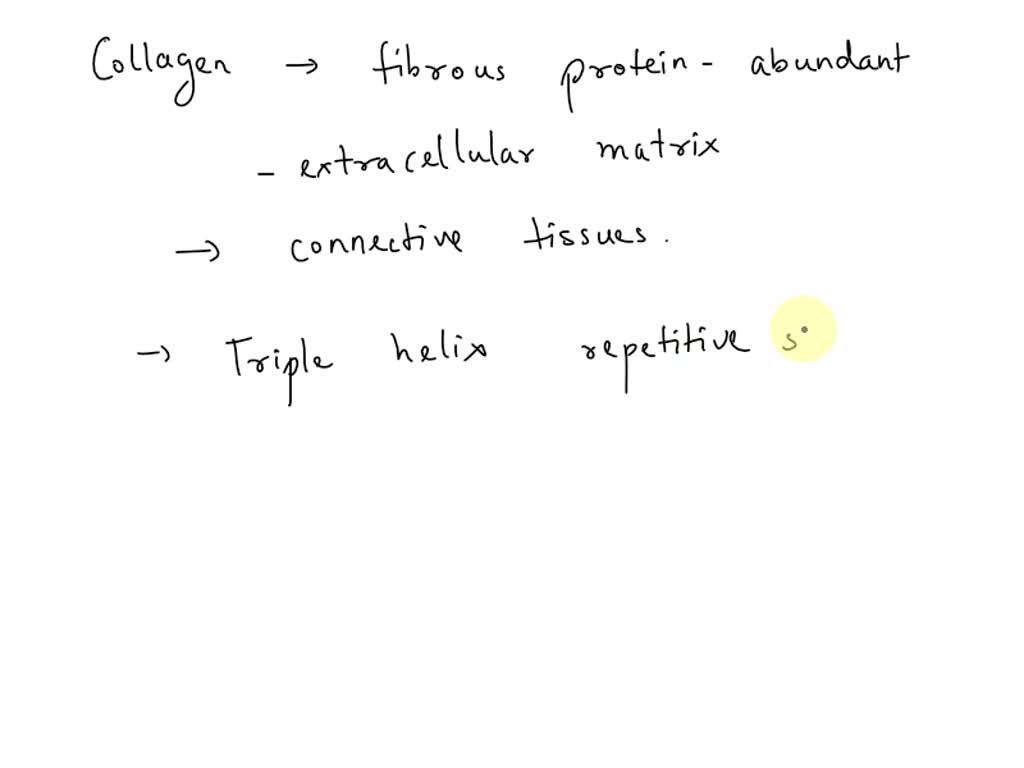 Collagen → fibrous protein - abundant
- extracellular matrix
→ connective tissues.
→ Triple helix repetitive s